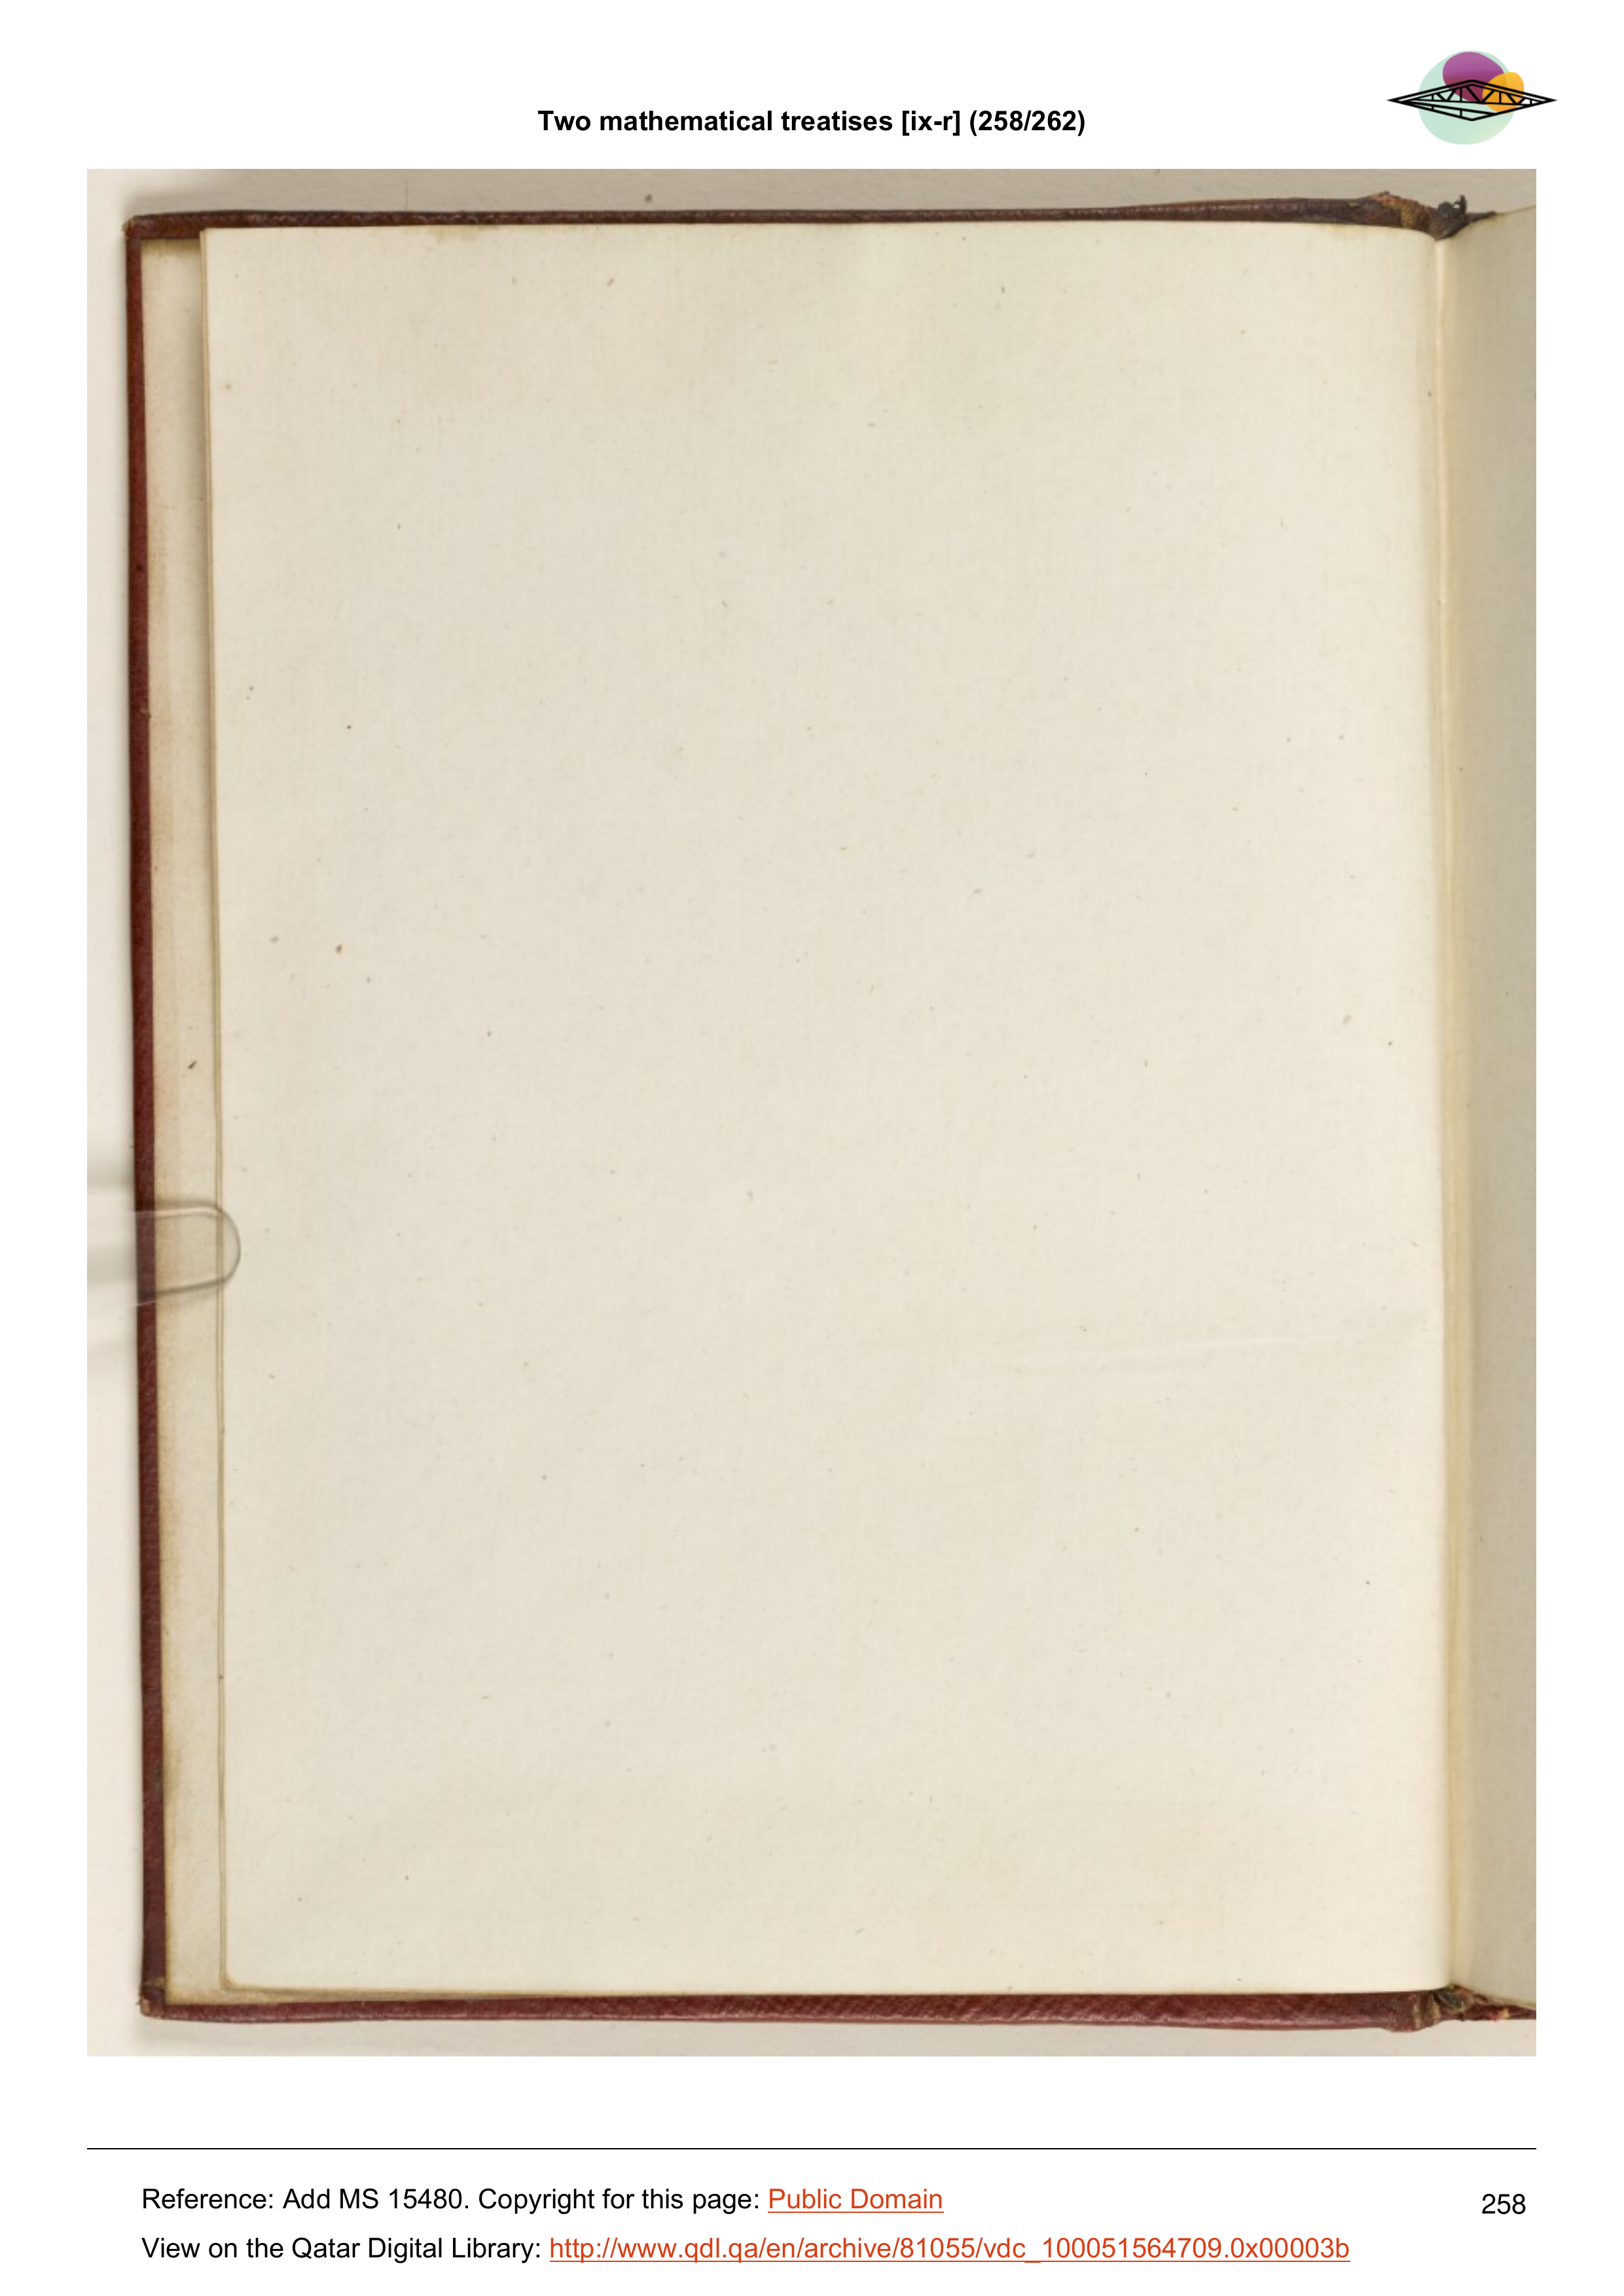 Two mathematical treatises [ix-r] (258/262)
Reference: Add MS 15480. Copyright for this page: Public Domain
258
View on the Qatar Digital Library: http://www.qdl.qa/en/archive/81055/vdc_100051564709.0x00003b